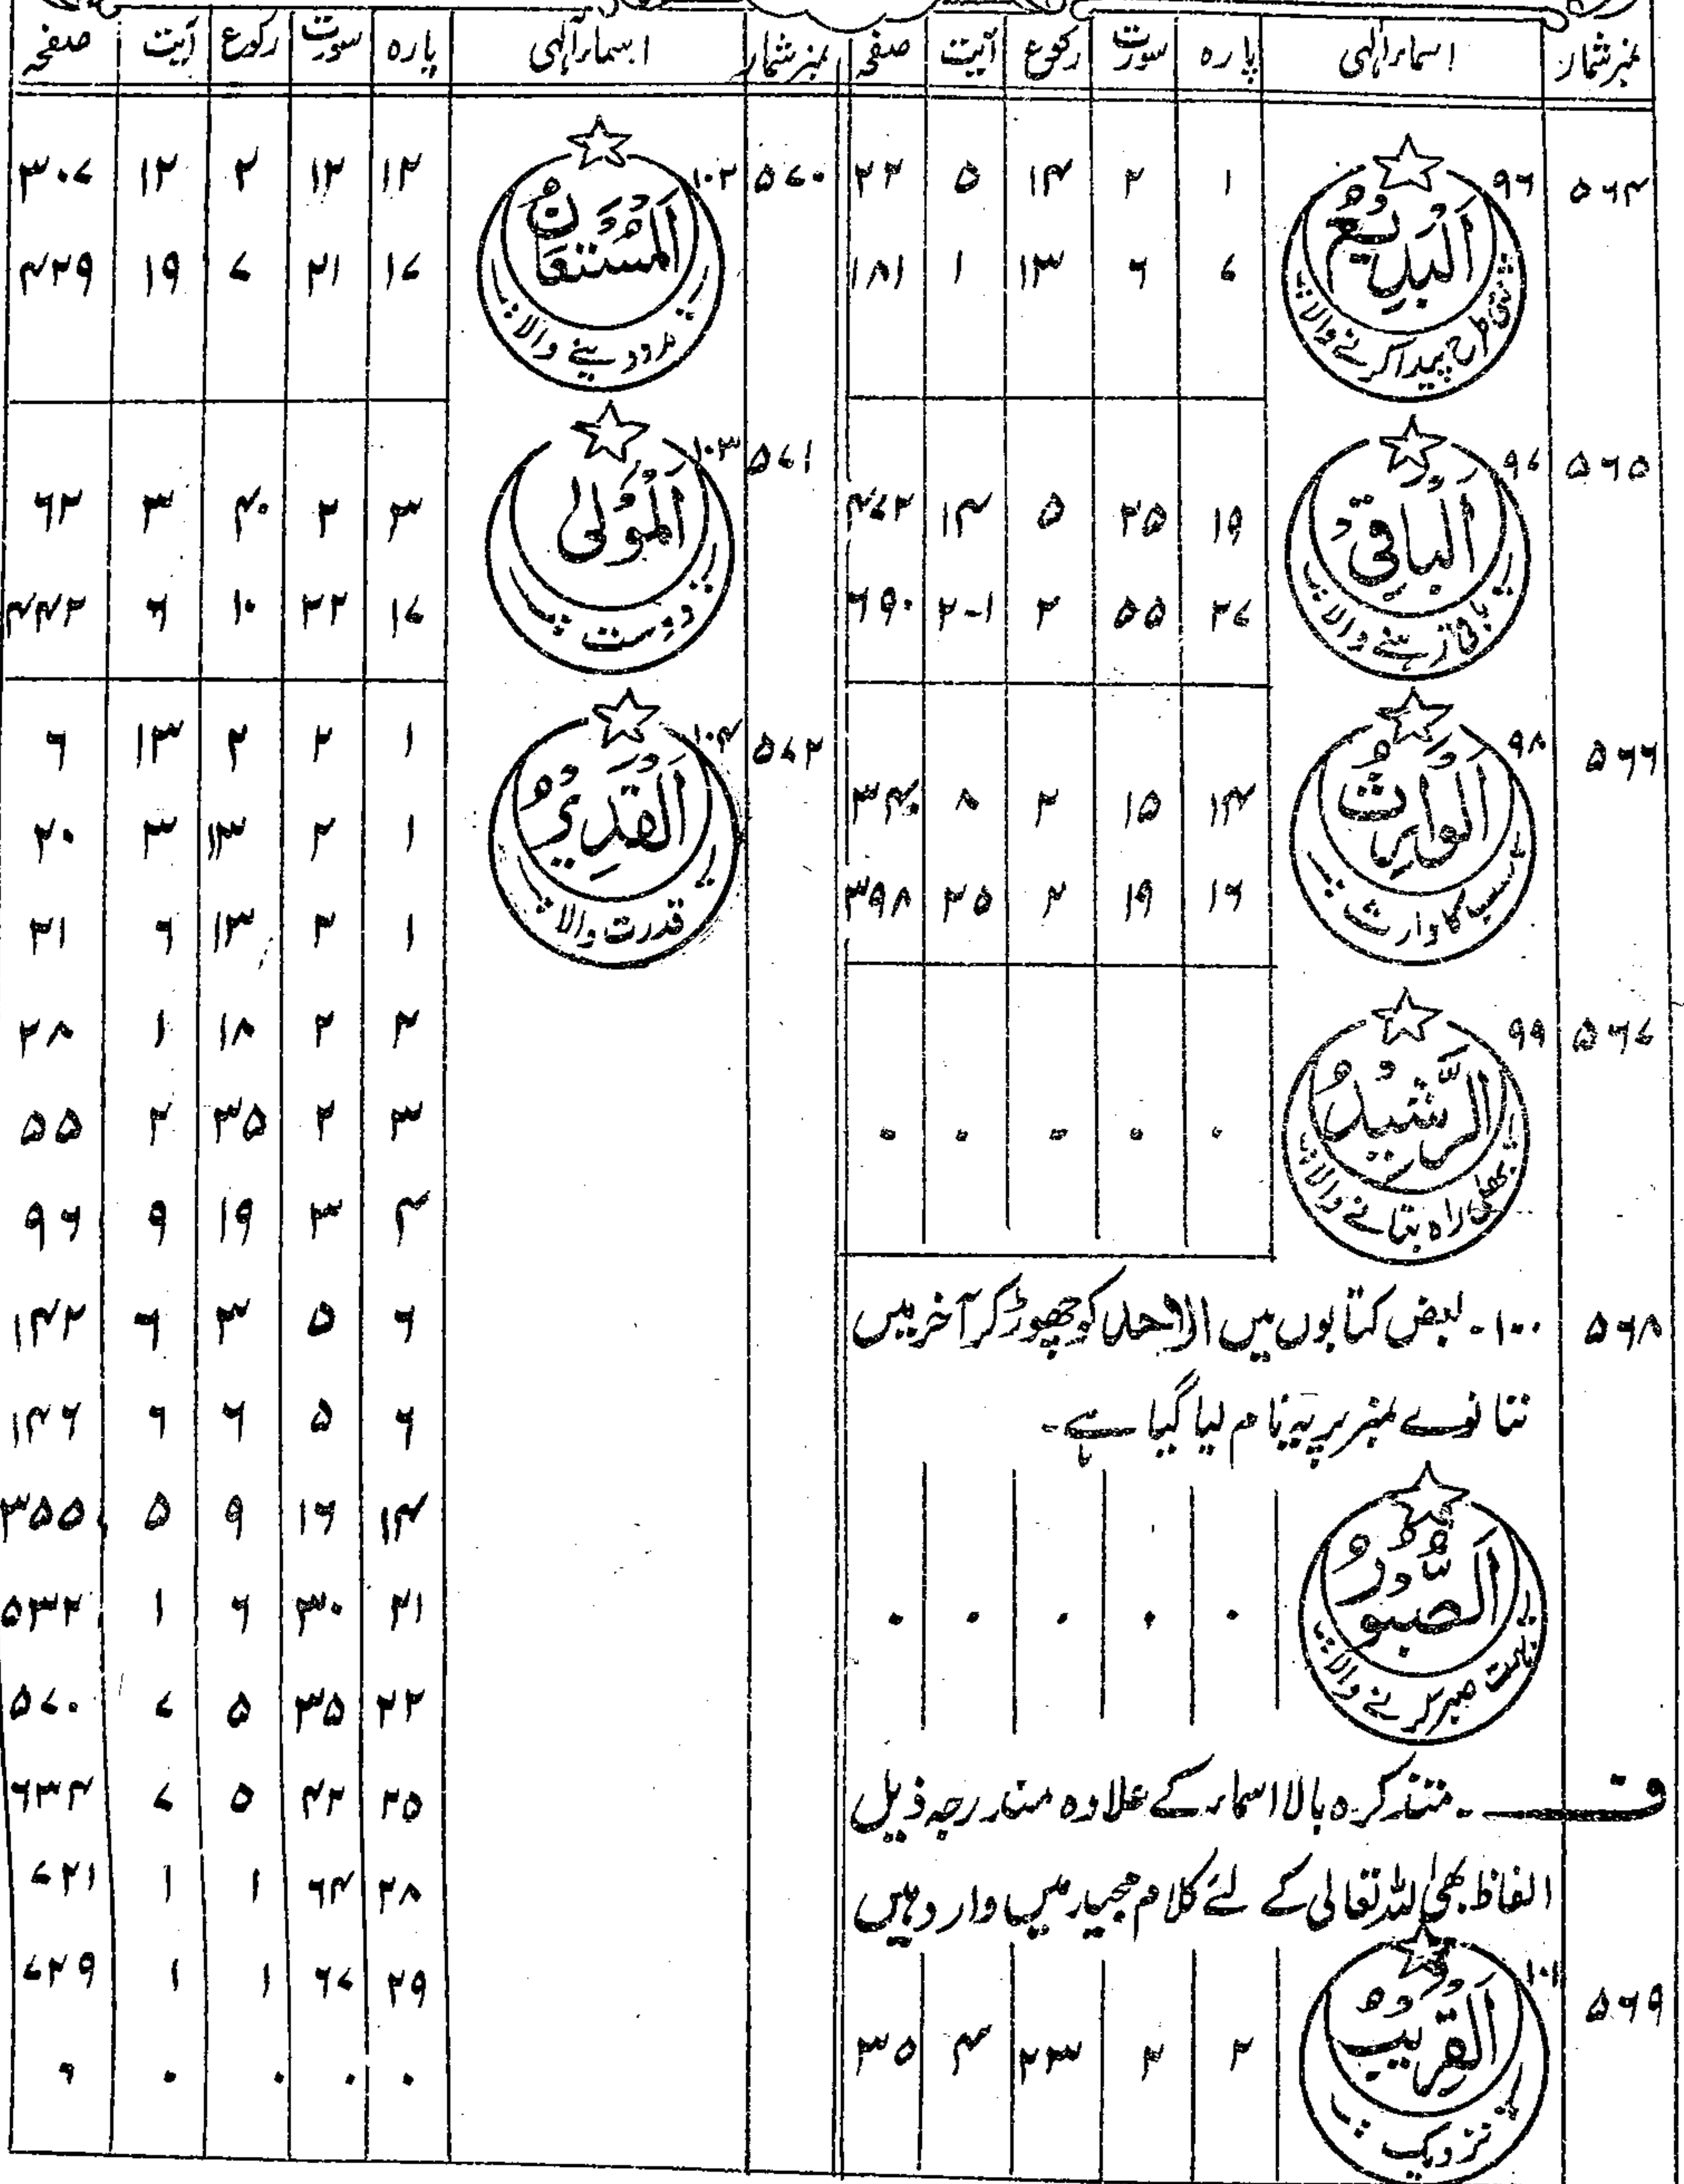 نمبر شمار | اسماء الٰہی | پارہ | سورت | رکوع | آیت | صفحہ
۵۶۴ | ۹۶ اَلْبَدِیْعُ نئی طرح پیدا کرنے والا | ۱ | ۲ | ۱۴ | ۵ | ۲۲
۷ | ۶ | ۱۳ | ۱ | ۱۸۱
۵۶۵ | ۹۷ اَلْبَاقِیْ باقی رہنے والا | ۱۹ | ۲۵ | ۵ | ۱۴ | ۴۷۲
۲۷ | ۵۵ | ۲ | ۱-۲ | ۶۹۰
۵۶۶ | ۹۸ اَلْوَارِثُ سب کا وارث | ۱۴ | ۱۵ | ۲ | ۸ | ۳۴۰
۱۶ | ۱۹ | ۲ | ۲۵ | ۳۹۸
۵۶۷ | ۹۹ اَلرَّشِیْدُ بھلی راہ بتانے والا | ۰ | ۰ | ۰ | ۰ | ۰
۵۶۸ ۱۰۰۔ بعض کتابوں میں الاحد کو چھوڑ کر آخر میں
ننانوے نمبر پر یہ نام لیا گیا ہے۔
اَلصَّبُوْرُ نہایت صبر کرنے والا | ۰ | ۰ | ۰ | ۰ | ۰
ف ۔ متذکرہ بالا اسماء کے علاوہ مندرجہ ذیل
الفاظ بھی اللہ تعالیٰ کے لئے کلام مجید میں وارد ہیں
۵۶۹ | ۱۰۱ اَلْقَرِیْبُ نزدیک | ۲ | ۲ | ۲۳ | ۴ | ۳۵
نمبر شمار | اسماء الٰہی | پارہ | سورت | رکوع | آیت | صفحہ
۵۷۰ | ۱۰۲ اَلْمُسْتَعَانُ مدد دینے والا | ۱۲ | ۱۲ | ۲ | ۱۲ | ۳۰۷
۱۷ | ۲۱ | ۷ | ۱۹ | ۴۲۹
۵۷۱ | ۱۰۳ اَلْمَوْلٰی دوست | ۳ | ۲ | ۴۰ | ۳ | ۶۲
۱۷ | ۲۲ | ۱۰ | ۶ | ۴۴۲
۵۷۲ | ۱۰۴ اَلْقَدِیْرُ قدرت والا | ۱ | ۲ | ۲ | ۱۳ | ۶
۱ | ۲ | ۱۳ | ۳ | ۲۰
۱ | ۲ | ۱۳ | ۶ | ۲۱
۲ | ۲ | ۱۸ | ۱ | ۲۸
۳ | ۲ | ۳۵ | ۲ | ۵۵
۴ | ۳ | ۱۹ | ۹ | ۹۶
۶ | ۵ | ۳ | ۶ | ۱۴۲
۶ | ۵ | ۶ | ۶ | ۱۴۶
۱۴ | ۱۶ | ۹ | ۵ | ۳۵۵
۲۱ | ۳۰ | ۶ | ۱ | ۵۳۲
۲۲ | ۳۵ | ۵ | ۷ | ۵۷۰
۲۵ | ۴۲ | ۵ | ۷ | ۶۳۴
۲۸ | ۶۴ | ۱ | ۱ | ۷۲۱
۲۹ | ۶۷ | ۱ | ۱ | ۷۲۹
۰ | ۰ | ۰ | ۰ | ۰